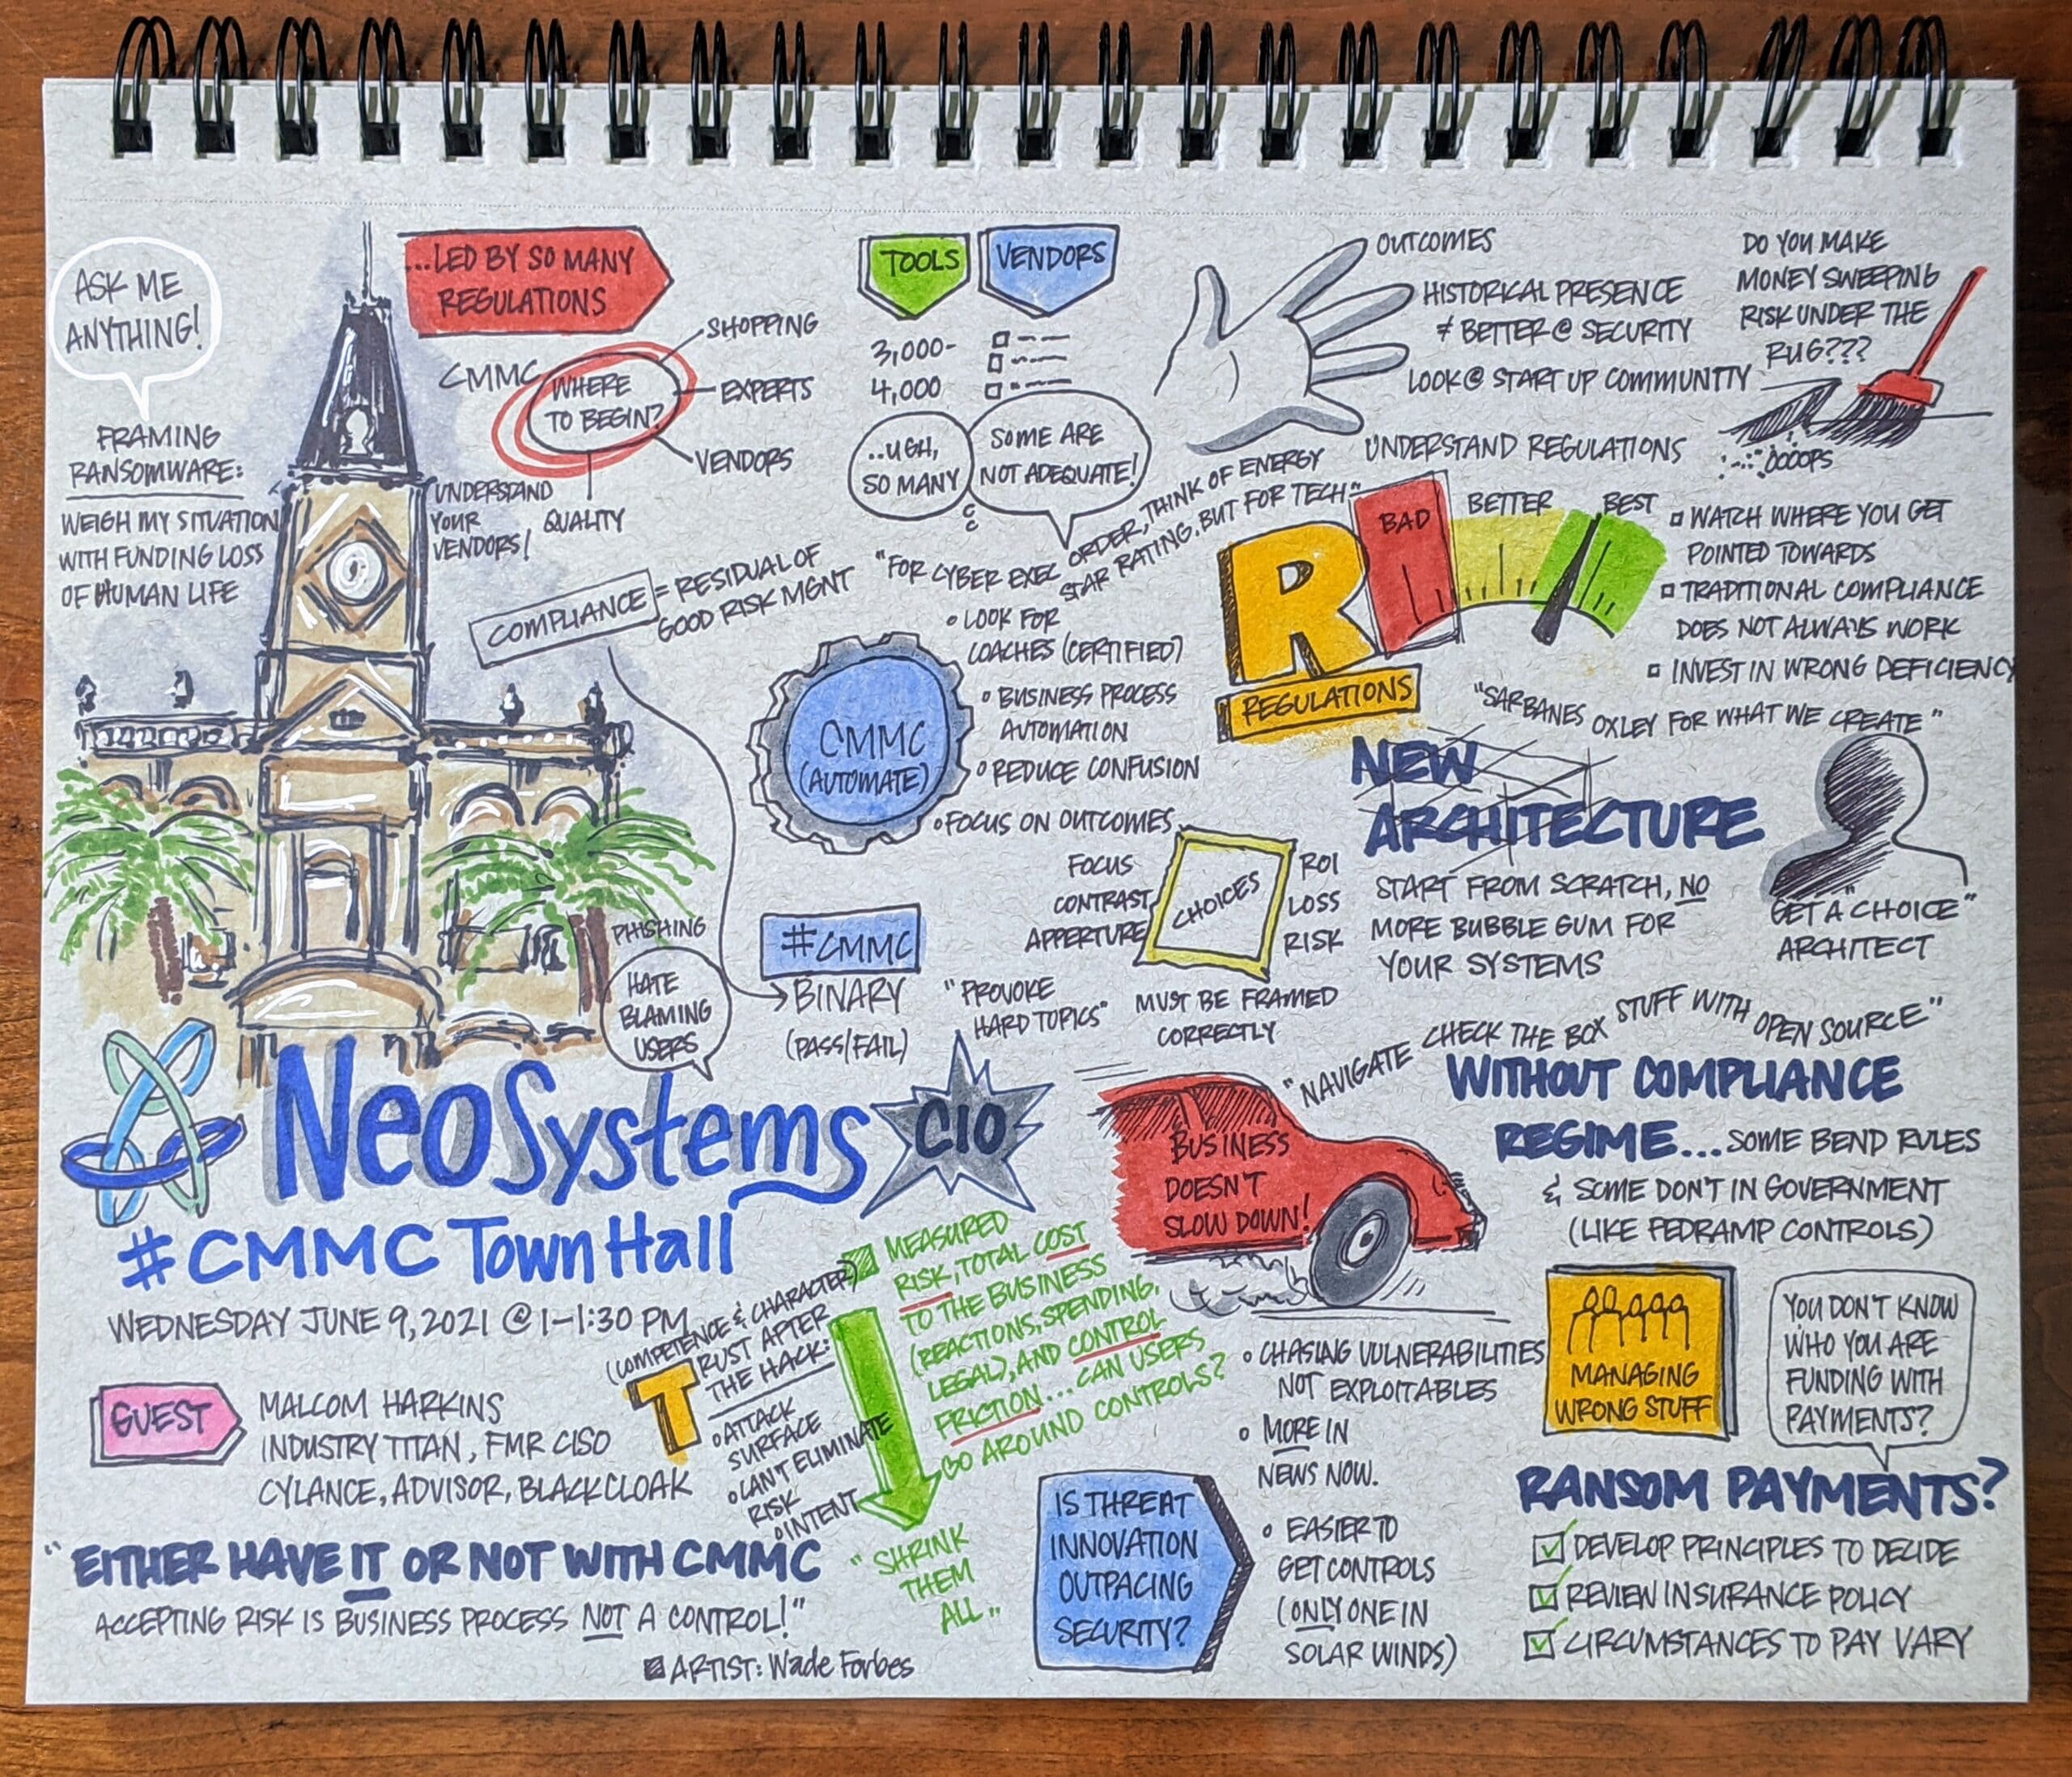 ASK ME
ANYTHING!
FRAMING
RANSOMWARE:
WEIGH MY SITUATION
WITH FUNDING LOSS
OF HUMAN LIFE
...LED BY SO MANY
REGULATIONS
CMMC
WHERE
TO BEGIN?
SHOPPING
EXPERTS
VENDORS
QUALITY
UNDERSTAND
YOUR
VENDORS!
COMPLIANCE = RESIDUAL OF
GOOD RISK MGNT
TOOLS
3,000-
4,000
VENDORS
..UGH,
SO MANY
SOME ARE
NOT ADEQUATE!
"FOR CYBER EXEC ORDER, THINK OF ENERGY
STAR RATING, BUT FOR TECH"
CMMC
(AUTOMATE)
LOOK FOR
COACHES (CERTIFIED)
BUSINESS PROCESS
AUTOMATION
REDUCE CONFUSION
FOCUS ON OUTCOMES
OUTCOMES
HISTORICAL PRESENCE
≠ BETTER @ SECURITY
LOOK @ START UP COMMUNITY
UNDERSTAND REGULATIONS
DO YOU MAKE
MONEY SWEEPING
RISK UNDER THE
RUG???
OOOOPS
R
REGULATIONS
BAD
BETTER
BEST
WATCH WHERE YOU GET
POINTED TOWARDS
TRADITIONAL COMPLIANCE
DOES NOT ALWAYS WORK
INVEST IN WRONG DEFICIENCY
"SARBANES OXLEY FOR WHAT WE CREATE"
NEW
ARCHITECTURE
START FROM SCRATCH, NO
MORE BUBBLE GUM FOR
YOUR SYSTEMS
GET A "CHOICE"
ARCHITECT
FOCUS
CONTRAST
APPERTURE
CHOICES
ROI
LOSS
RISK
MUST BE FRAMED
CORRECTLY
#CMMC
BINARY
(PASS/FAIL)
"PROVOKE
HARD TOPICS"
CIO
PHISHING
HATE
BLAMING
USERS
NeoSystems
#CMMC Town Hall
WEDNESDAY JUNE 9, 2021 @ 1-1:30 PM
GUEST
MALCOM HARKINS
INDUSTRY TITAN, FMR CISO
CYLANCE, ADVISOR, BLACKCLOAK
"EITHER HAVE IT OR NOT WITH CMMC
ACCEPTING RISK IS BUSINESS PROCESS NOT A CONTROL!"
ARTIST: Wade Forbes
(COMPETENCE & CHARACTER)
TRUST AFTER
THE HACK:
ATTACK
SURFACE
CAN'T ELIMINATE
RISK
INTENT
MEASURED
RISK, TOTAL COST
TO THE BUSINESS
(REACTIONS, SPENDING,
LEGAL), AND CONTROL
FRICTION... CAN USERS
GO AROUND CONTROLS?
"SHRINK
THEM
ALL"
BUSINESS
DOESN'T
SLOW DOWN!
"NAVIGATE CHECK THE BOX STUFF WITH OPEN SOURCE"
WITHOUT COMPLIANCE
REGIME... SOME BEND RULES
& SOME DON'T IN GOVERNMENT
(LIKE FEDRAMP CONTROLS)
IS THREAT
INNOVATION
OUTPACING
SECURITY?
CHASING VULNERABILITIES
NOT EXPLOITABLES
MORE IN
NEWS NOW.
EASIER TO
GET CONTROLS
(ONLY ONE IN
SOLAR WINDS)
MANAGING
WRONG STUFF
YOU DON'T KNOW
WHO YOU ARE
FUNDING WITH
PAYMENTS?
RANSOM PAYMENTS?
DEVELOP PRINCIPLES TO DECIDE
REVIEW INSURANCE POLICY
CIRCUMSTANCES TO PAY VARY